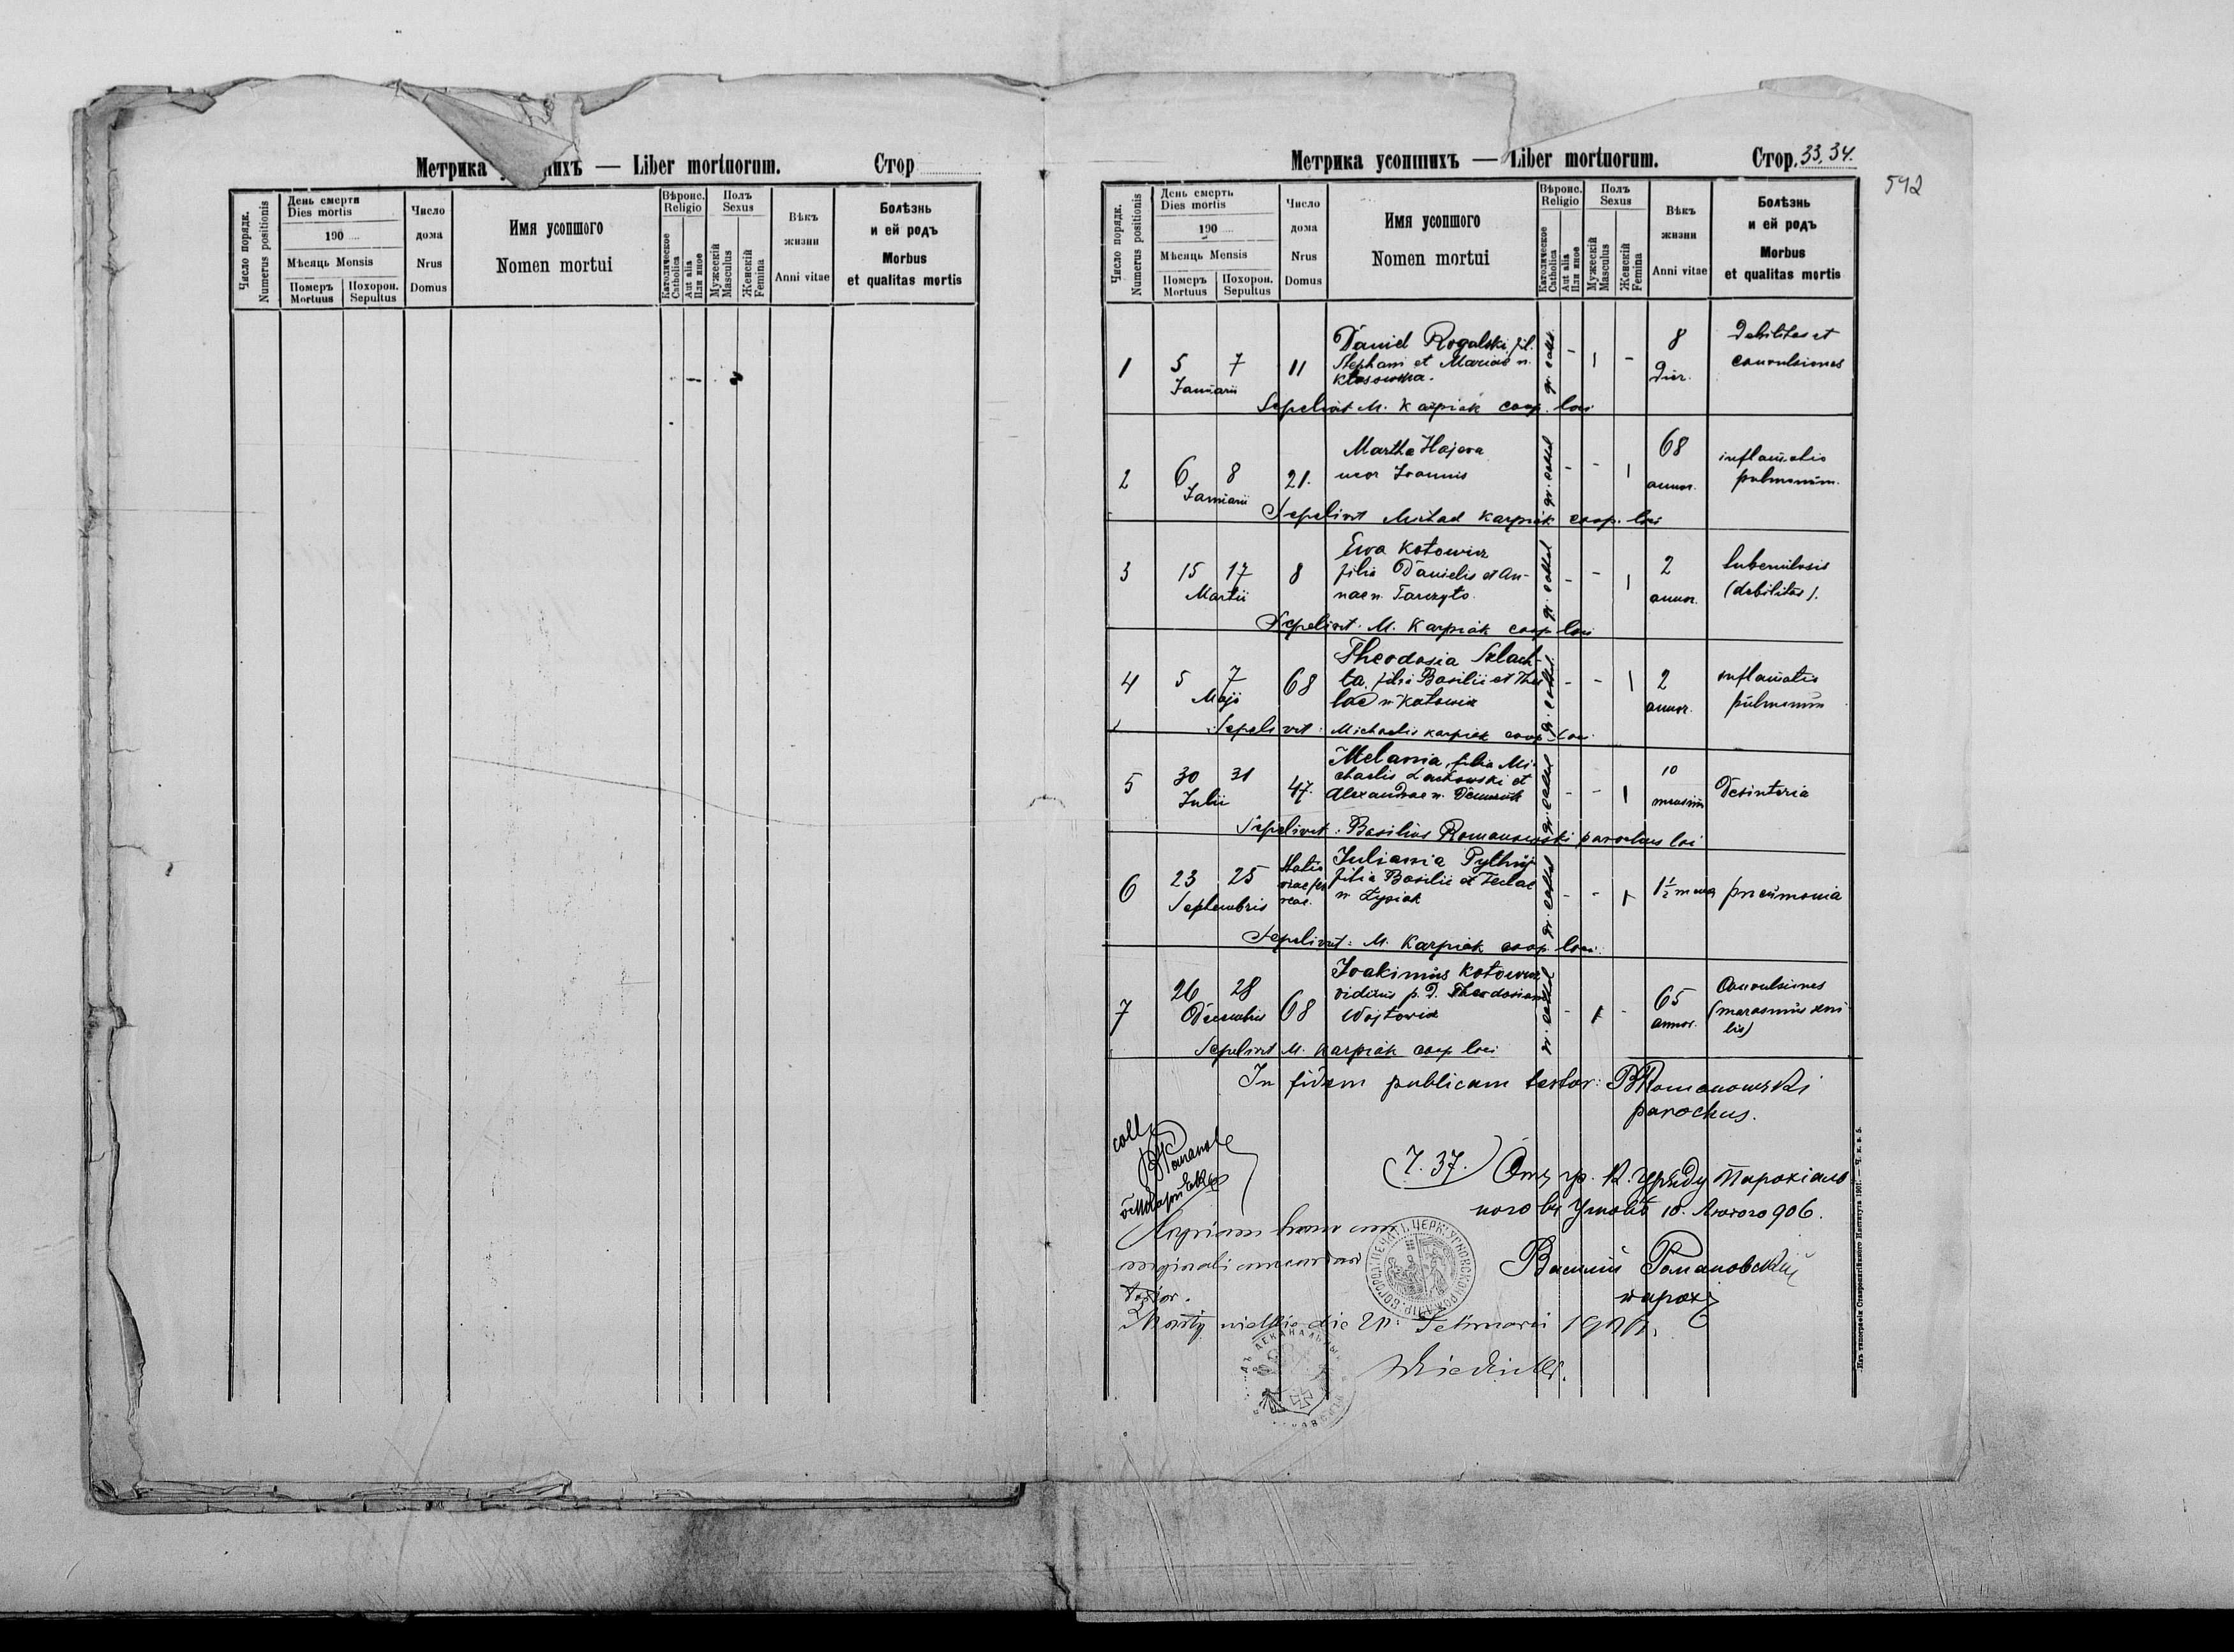 Метрика — Liber mortuorum. Стор
Число порядк. Numerus positionis
День смерти Dies mortis
190
Мѣсяць Mensis
Померъ Mortuus
Похорон. Sepultus
Число дома Nrus Domus
Имя усопшого
Nomen mortui
Вѣроис. Religio
Католическое Catholica
Aut alia Или иное
Полъ Sexus
Мужескій Masculus
Женскій Femina
Вѣкъ жизни Anni vitae
Болѣзнь и ей родъ
Morbus et qualitas mortis
Метрика усопшихъ — Liber mortuorum. Стор. 33, 34.
592
Число порядк. Numerus positionis
День смерть Dies mortis
190
Мѣсяць Mensis
Померъ Mortuus
Похорон. Sepultus
Число дома Nrus Domus
Имя усопшого
Nomen mortui
Вѣроис. Religio
Католическое Catholica
Aut alia Или иное
Полъ Sexus
Мужескій Masculus
Женскій Femina
Вѣкъ жизни Anni vitae
Болѣзнь и ей родъ
Morbus et qualitas mortis
1 5 7 Januarii 11
Daniel Rogalski, fil.
Stephani et Mariae n.
Kłosowska.
gr. cath. - 1 - 8 dier.
Debilitas et
convulsiones
Sepelivit M. Karpiak coop. loci
2 6 8 Januarii 21.
Martha
uxor Joannis
gr. cathol - - 1 68 annor.
inflamatio
pulmonum.
Sepelivit Michael Karpiak coop. loci
3 15 17 Martii 8
Ewa Kotowicz
filia Danielis et An-
nae n.
gr. cathol - - 1 2 annor.
tuberculosis
(debilitas).
Sepelivit: M. Karpiak coop loci
4 5 7 Maji 68
Theodosia Szlach-
ta, filia Basilii et
n. Kotowicz
gr. cathol. - - 1 2 annor.
inflamatio
pulmonum
Sepelivit: Michaelis Karpiak coop loci
5 30 31 Julii 47.
Melania, filia Mi-
chaelis et
Alexandrae n.
gr. cathol - - 1 10
Desinteria
Sepelivit: Basilius Romanowski parochus loci
6 23 25 Septembris
Juliania
filia Basilii et Teclae
n. Łysiak
gr. cathol - - 1 1½ pneumonia
Sepelivit: M. Karpiak coop loci
7 26 28 Decembris 68
Joakimus Kotowicz
viduus p. D. Theodosiam
Wojtowicz
gr. cathol - 1 - 65 annor.
Convulsiones
(marasmus seni-
lis)
Sepelivit M. Karpiak coop loci
In fidem publicam testor: BRomanowski
parochus.
coll
Ч. 37.) Отъ гр. к. уряду парохіаль
ного въ 10. Лютого 906.
Василій Романовскій
парохъ
originali
testor.
Mosty wielkie die
Изъ типографіи Ставропигійского Института 1901. — Ч. к. в. 5.